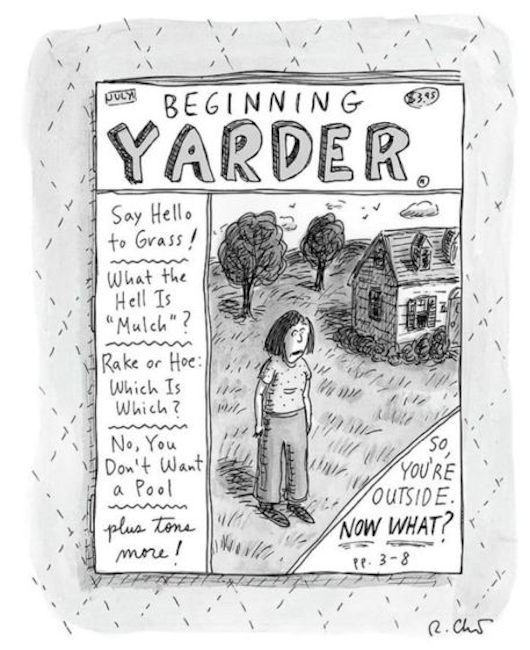 JULY
BEGINNING
$3.95
YARDER
Say Hello
to Grass!
What the
Hell Is
"Mulch"?
Rake or Hoe:
Which Is
Which?
No, You
Don't Want
a Pool
plus tons
more!
SO,
YOU'RE
OUTSIDE.
NOW WHAT?
pp. 3-8
R. Ch